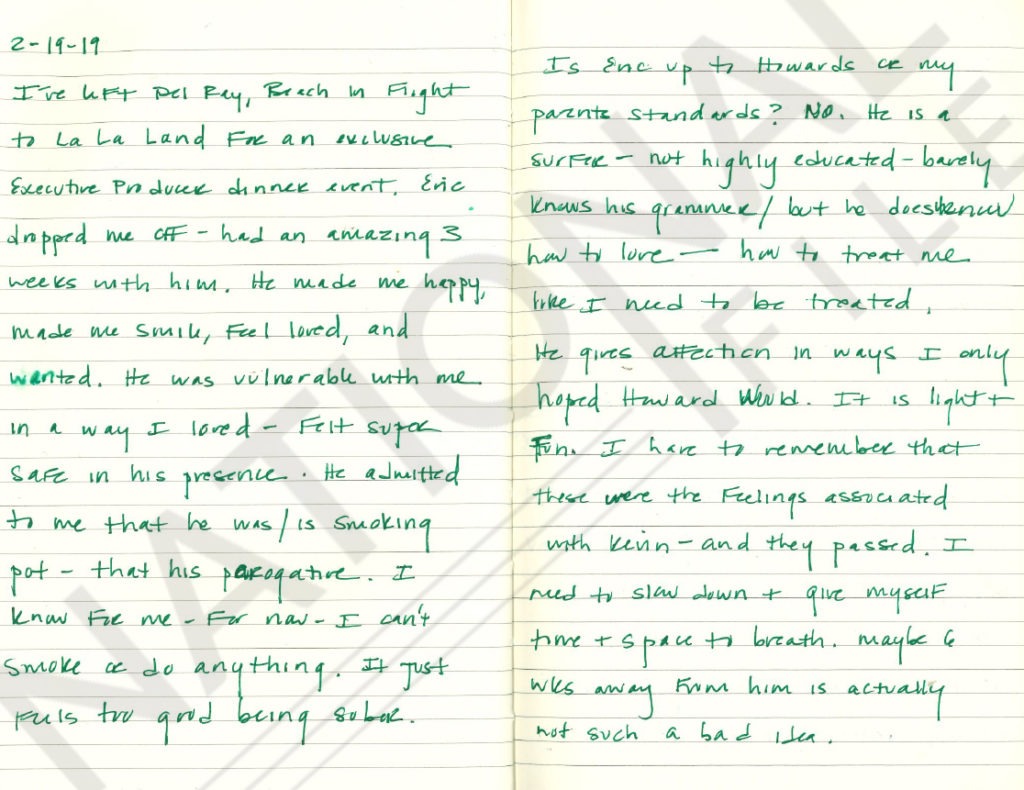 2-19-19
I've left Del Ray, Beach in Flight
to La La Land For an exclusive
Executive Producer dinner event. Eric
dropped me off - had an amazing 3
weeks with him. He made me happy,
made me smile, Feel loved, and
wanted. He was vulnerable with me
in a way I loved - Felt super
safe in his presence. He admitted
to me that he was/is smoking
pot - that his parogative. I
know For me - For now - I can't
smoke or do anything. It just
Feels too good being sober.
Is Eric up to Howards or my
parents standards? No. He is a
surfer - not highly educated - barely
knows his grammer/ but he does know
how to love — how to treat me
like I need to be treated.
He gives affection in ways I only
hoped Howard would. It is light +
Fun. I have to remember that
these were the Feelings associated
with Kevin - and they passed. I
need to slow down + give myself
time + space to breath. maybe 6
wks away From him is actually
not such a bad idea.
NATIONAL
FILE